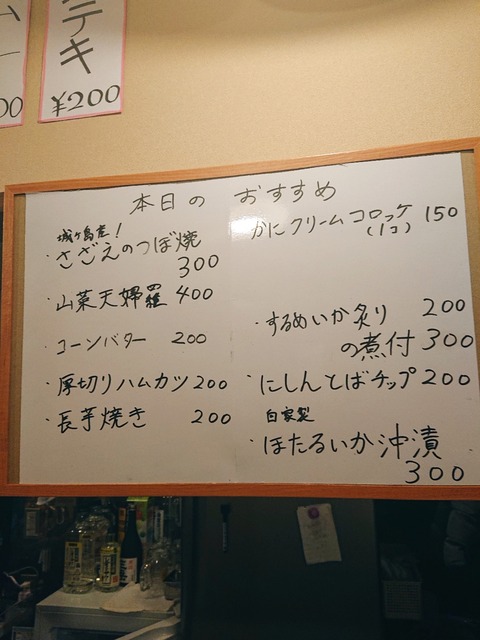 テキ
¥200
00
本日の おすすめ
城ヶ島産!
・さざえのつぼ焼
300
・山菜天婦羅 400
・コーンバター 200
・厚切りハムカツ 200
・長芋焼き 200
かにクリームコロッケ 150
(1コ)
・するめいか炙り 200
の煮付 300
・にしんとばチップ 200
自家製
・ほたるいか沖漬
300